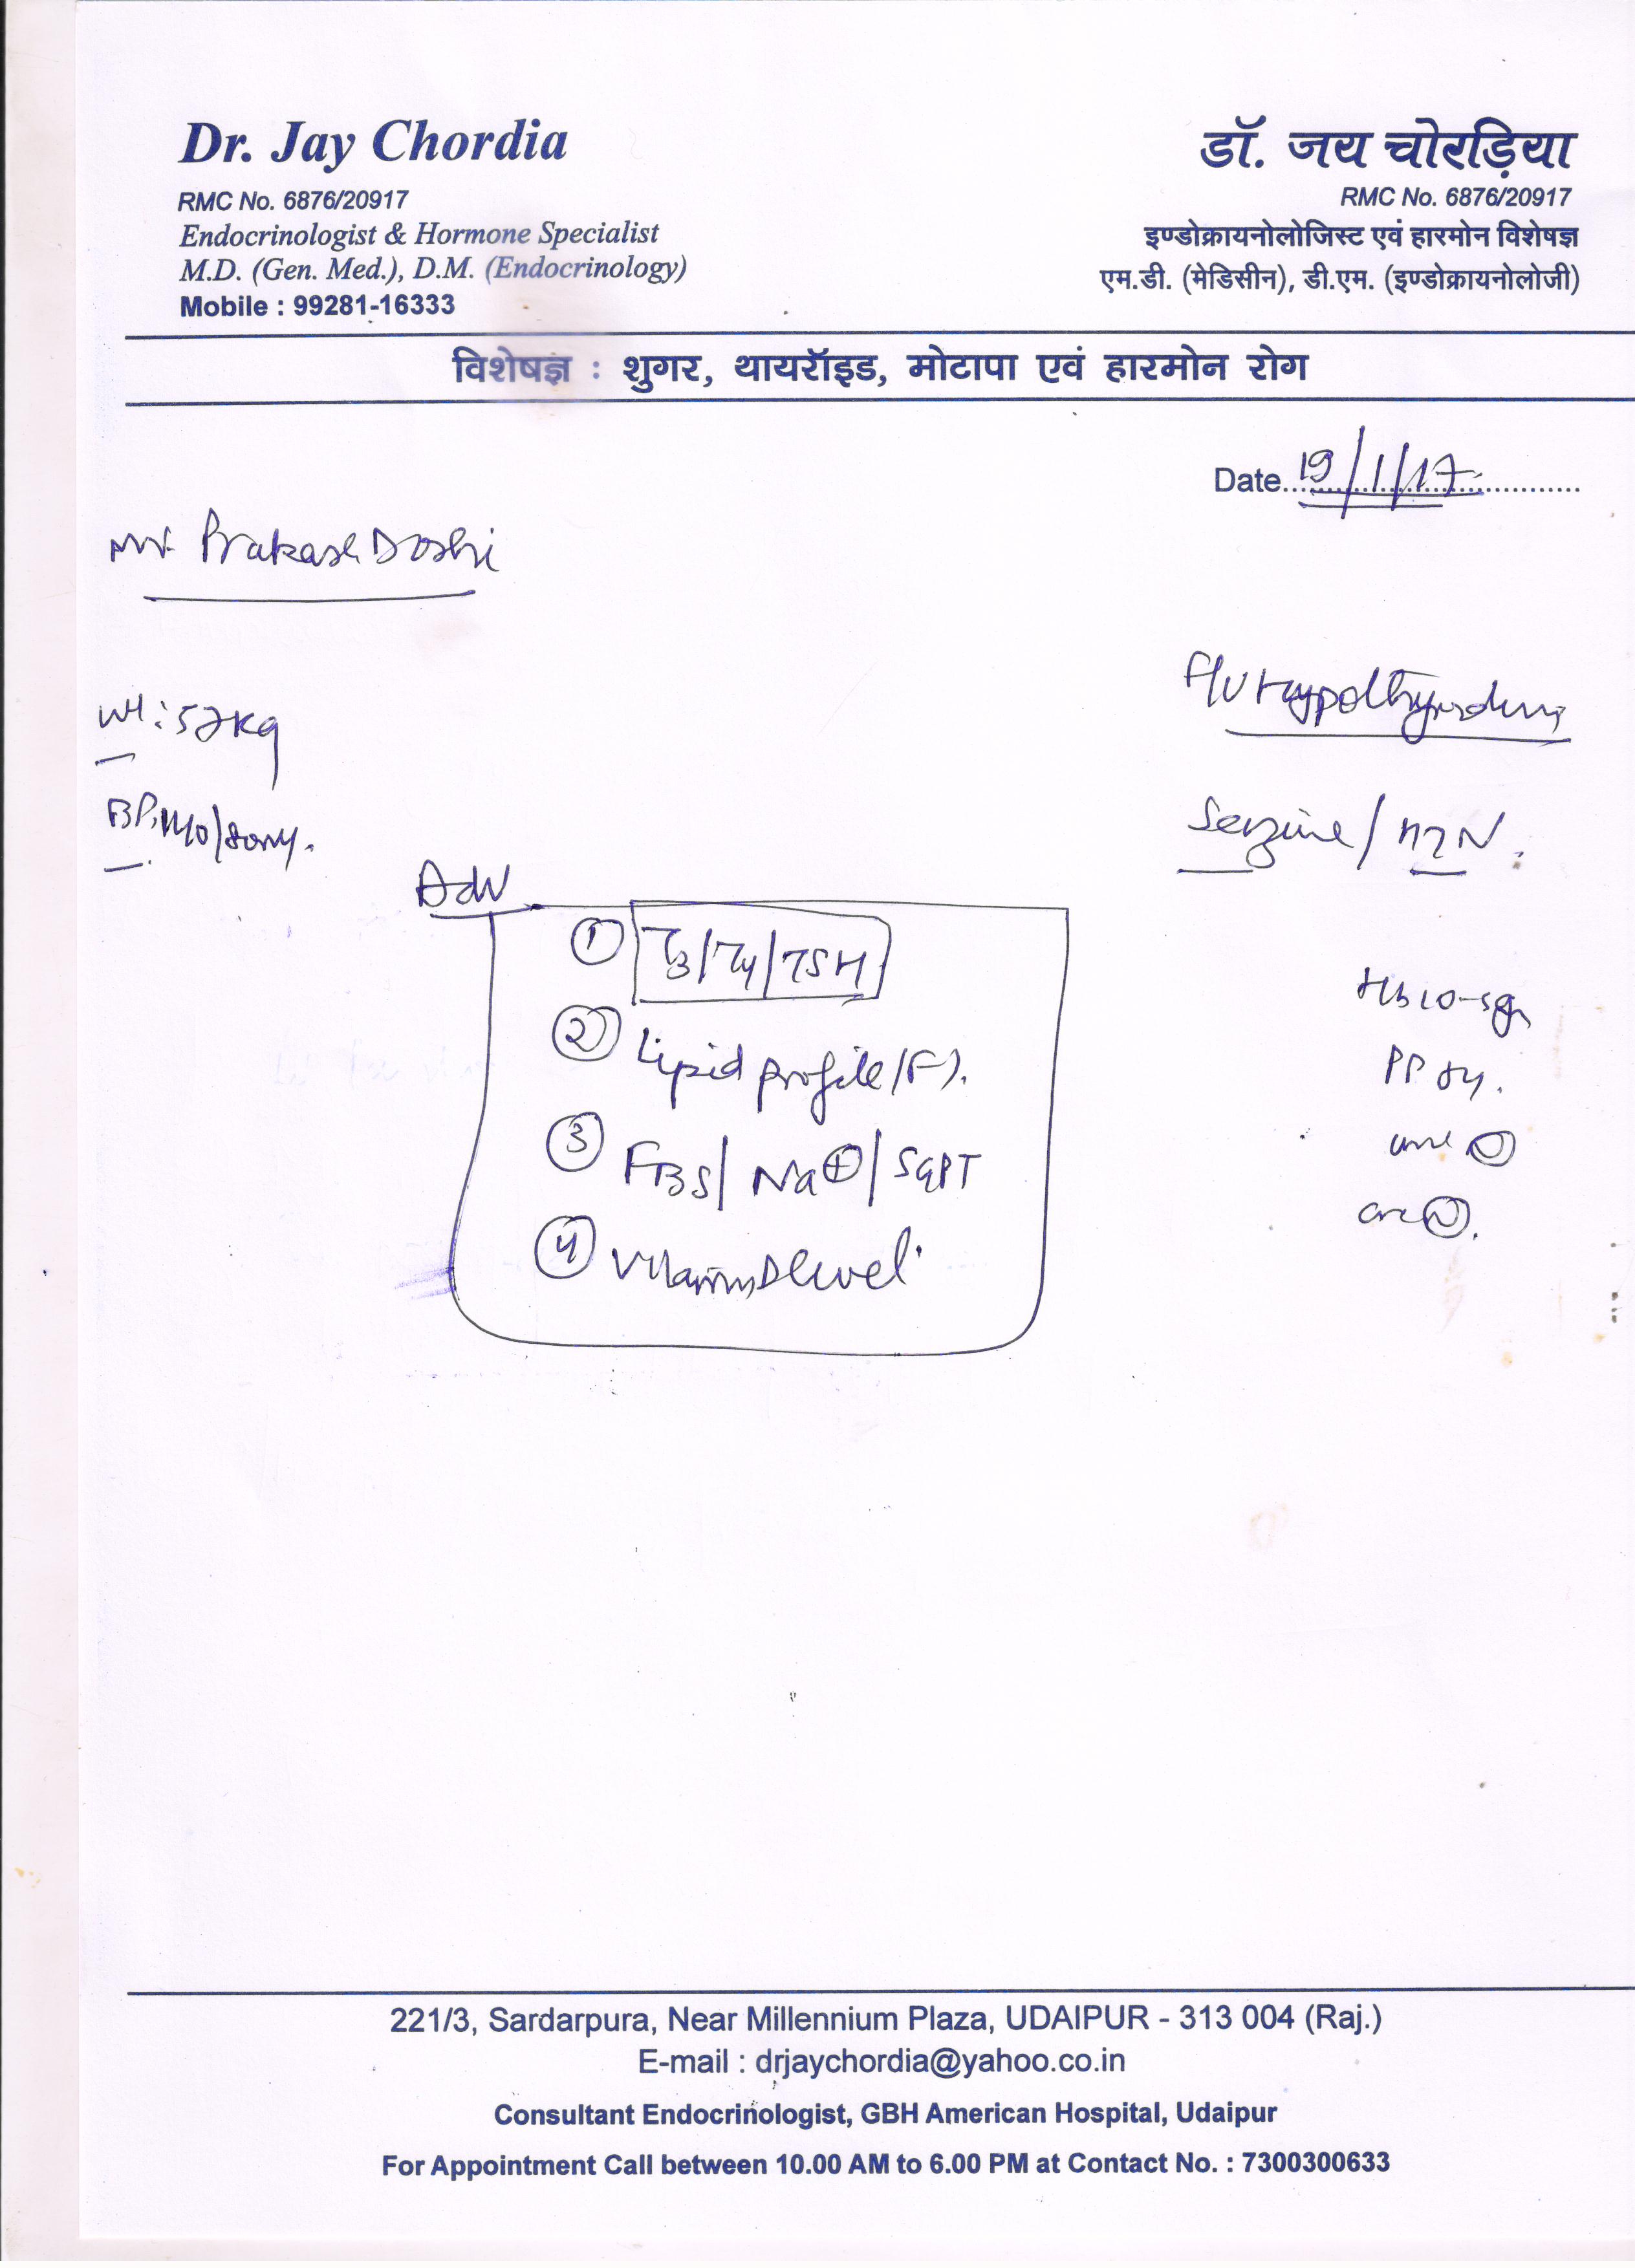 Dr. Jay Chordia
RMC No. 6876/20917
Endocrinologist & Hormone Specialist
M.D. (Gen. Med.), D.M. (Endocrinology)
Mobile : 99281-16333
डॉ. जय चोरड़िया
RMC No. 6876/20917
इण्डोक्रायनोलोजिस्ट एवं हारमोन विशेषज्ञ
एम.डी. (मेडिसीन), डी.एम. (इण्डोक्रायनोलोजी)
विशेषज्ञ : शुगर, थायरॉइड, मोटापा एवं हारमोन रोग
Date 19/1/17
Mr. Prakash Doshi
F/U Hypothyroidism
Wt: 52kg
BP: 140/80
Adv
① T3/T4/TSH
② Lipid profile (F).
③ FBS/ Na⊕/ SGPT
④ Vitamin D level
Hb 10.5g
PP 84.
221/3, Sardarpura, Near Millennium Plaza, UDAIPUR - 313 004 (Raj.)
E-mail : drjaychordia@yahoo.co.in
Consultant Endocrinologist, GBH American Hospital, Udaipur
For Appointment Call between 10.00 AM to 6.00 PM at Contact No. : 7300300633